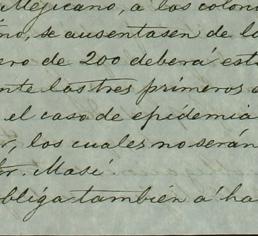 Mejicano, a los coloni
no, se ausentasen de la
ero de 200 deberá est
nte los tres primeros a
el caso de epidemia
r, los cuales no serán
ter. Masé
obliga también á ha